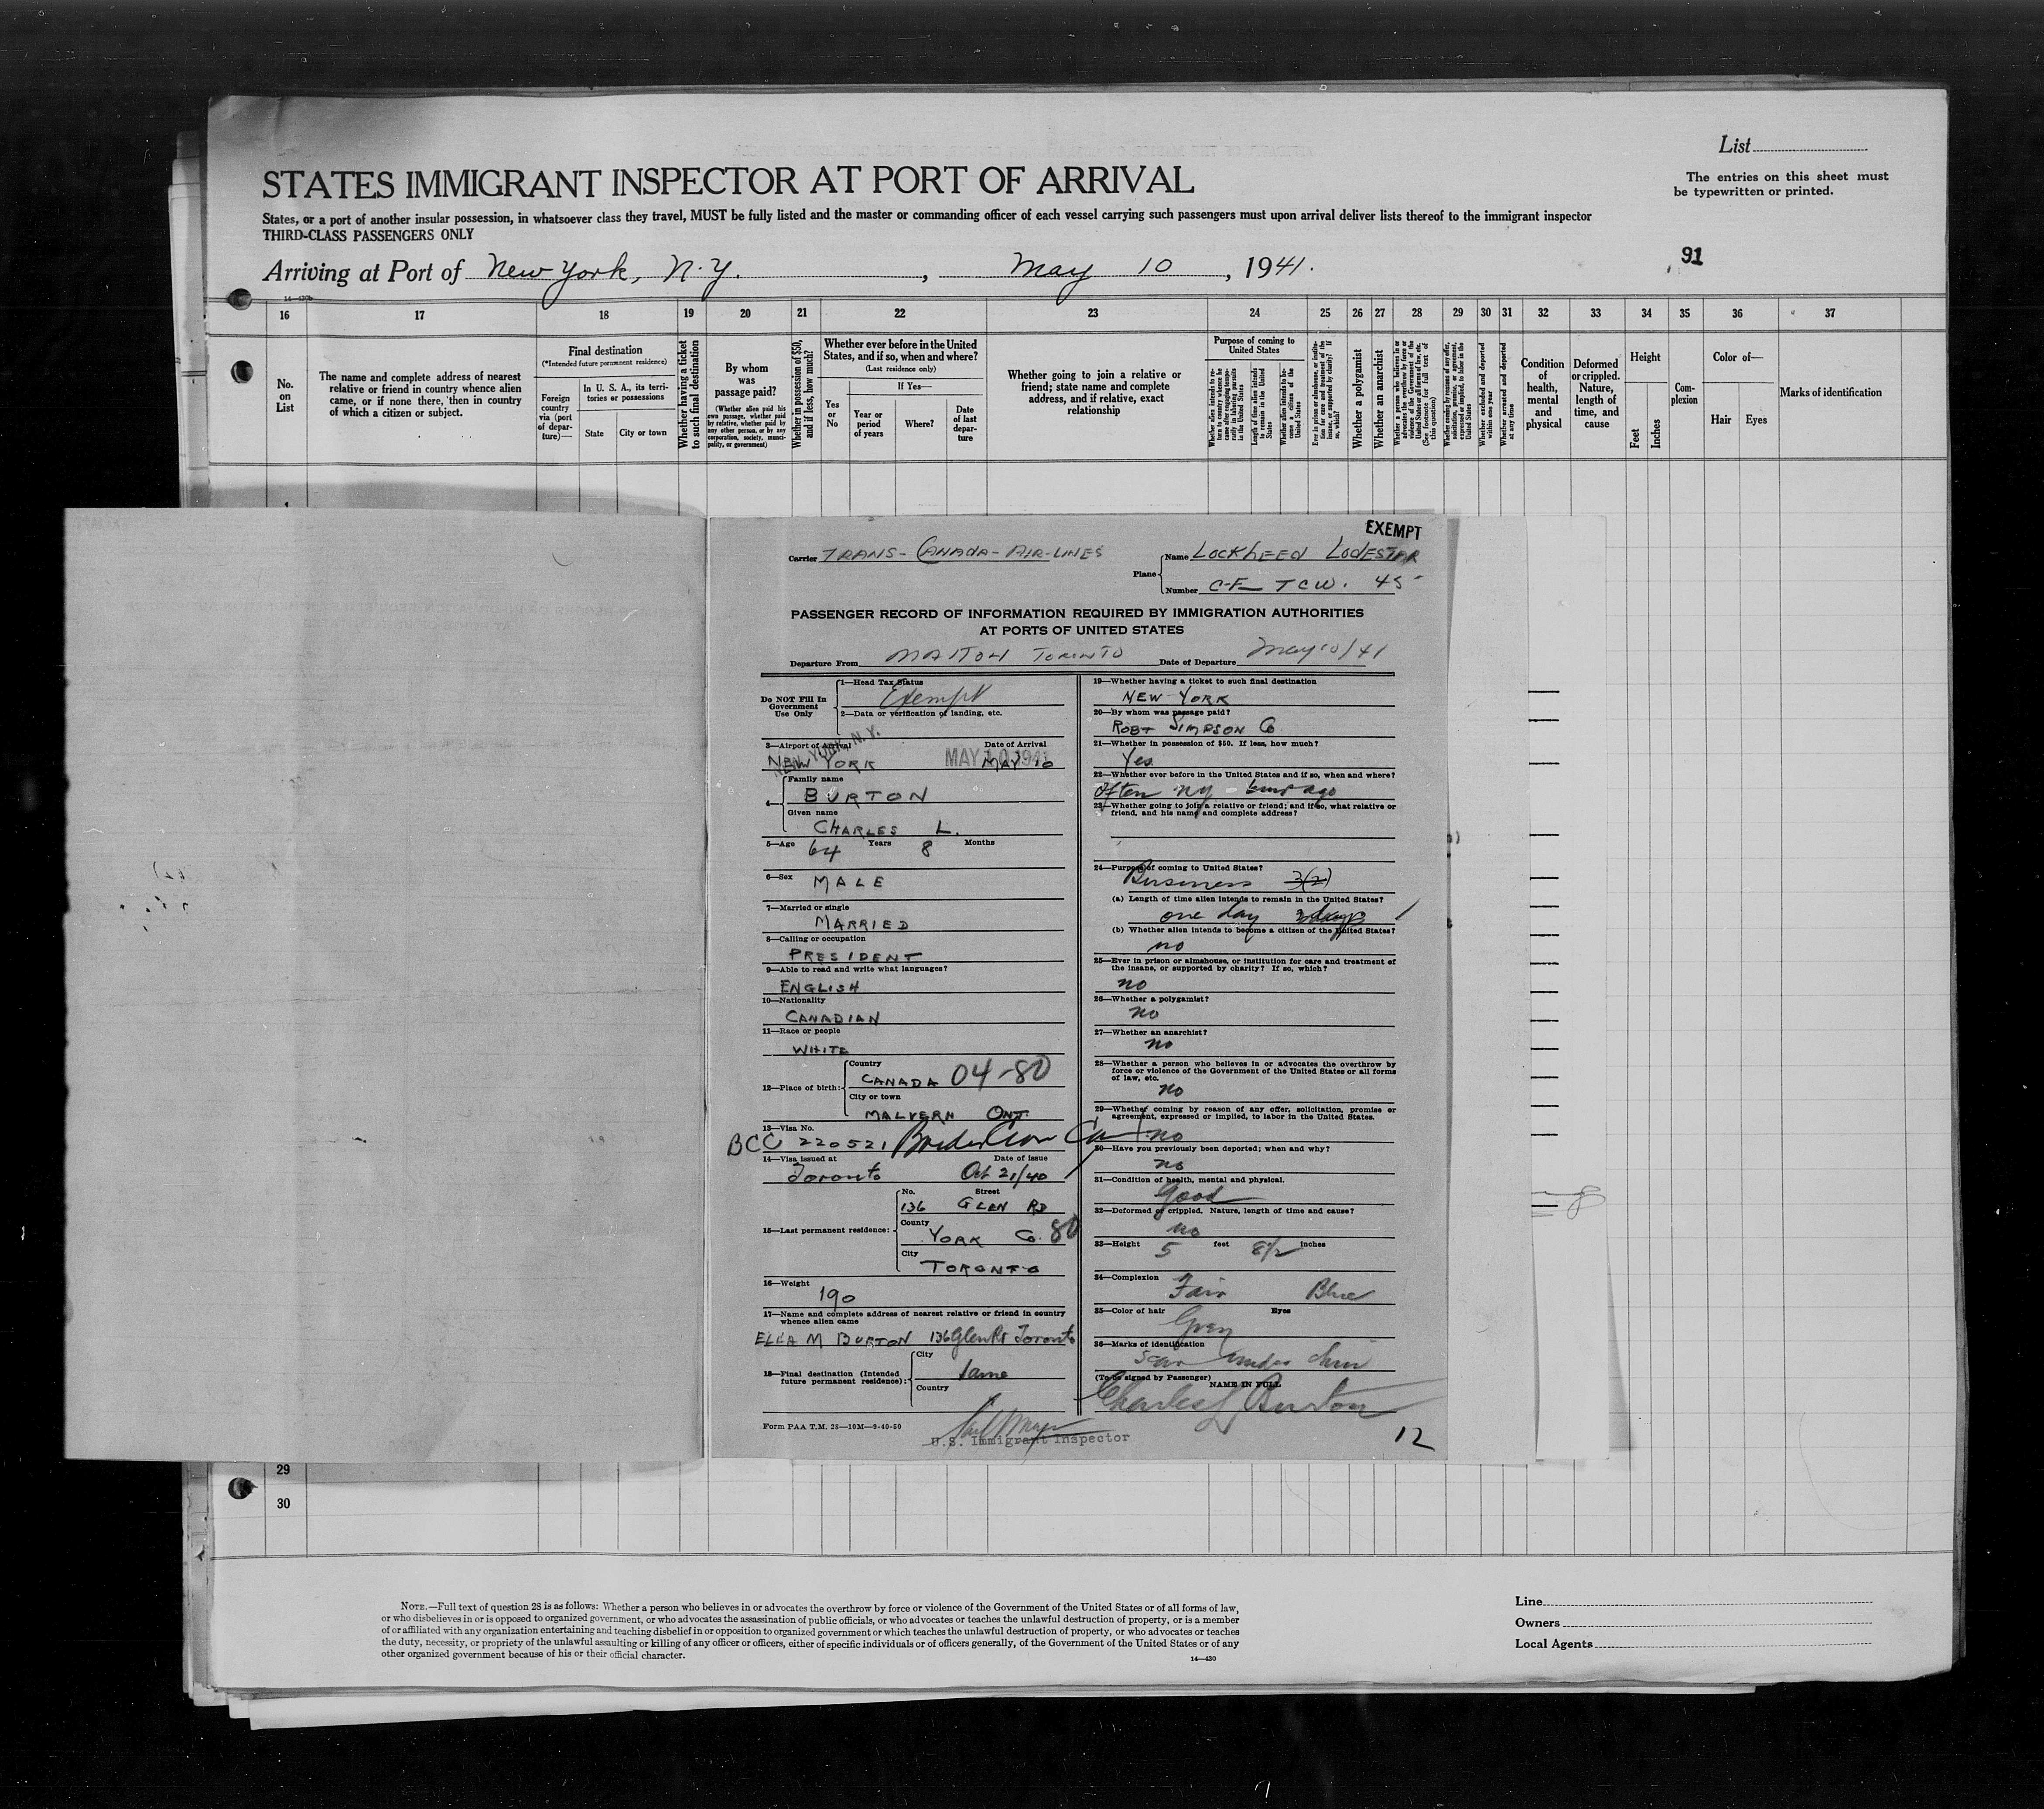 List
STATES IMMIGRANT INSPECTOR AT PORT OF ARRIVAL
The entries on this sheet must
be typewritten or printed.
States, or a port of another insular possession, in whatsoever class they travel, MUST be fully listed and the master or commanding officer of each vessel carrying such passengers must upon arrival deliver lists thereof to the immigrant inspector
THIRD-CLASS PASSENGERS ONLY
91
Arriving at Port of New York, N.Y., May 10, 1941.
16 17 18 19 20 21 22 23 24 25 26 27 28 29 30 31 32 33 34 35 36 37
No. on List
The name and complete address of nearest
relative or friend in country whence alien
came, or if none there, then in country
of which a citizen or subject.
Final destination
(*Intended future permanent residence)
Foreign country via (port of departure)—
In U. S. A., its territories or possessions
State
City or town
Whether having a ticket to such final destination
By whom was passage paid?
(Whether alien paid his own passage, whether paid by relative, whether paid by any other person, or by any corporation, society, municipality, or government)
Whether in possession of $50, and if less, how much?
Whether ever before in the United
States, and if so, when and where?
(Last residence only)
Yes or No
If Yes—
Year or period of years
Where?
Date of last departure
Whether going to join a relative or
friend; state name and complete
address, and if relative, exact
relationship
Purpose of coming to United States
Whether a polygamist
Whether an anarchist
Condition of health, mental and physical
Deformed or crippled. Nature, length of time, and cause
Height
Feet
Inches
Complexion
Color of—
Hair
Eyes
Marks of identification
EXEMPT
Carrier TRANS-CANADA-AIR-LINES
Plane
Name LOCKHEED LODESTAR
Number C-F TCW. 45
PASSENGER RECORD OF INFORMATION REQUIRED BY IMMIGRATION AUTHORITIES
AT PORTS OF UNITED STATES
Departure From MALTON TORONTO Date of Departure May 10/41
Do NOT Fill In
Government
Use Only
1—Head Tax Status
Exempt
2—Data or verification of landing, etc.
3—Airport of Arrival Date of Arrival
NEW YORK, N.Y.
NEW YORK MAY 10 1941 MAY 10
4—Family name
BURTON
Given name
CHARLES L.
5—Age 64 Years 8 Months
6—Sex MALE
7—Married or single
MARRIED
8—Calling or occupation
PRESIDENT
9—Able to read and write what languages?
ENGLISH
10—Nationality
CANADIAN
11—Race or people
WHITE
12—Place of birth:
Country
CANADA 04-80
City or town
MALVERN ONT.
13—Visa No.
BCC 220521 Border Cross Ca
14—Visa issued at Date of issue
Toronto Oct 21/40
15—Last permanent residence:
No. Street
136 GLEN RD
County
YORK Co. 80
City
TORONTO
16—Weight
190
17—Name and complete address of nearest relative or friend in country
whence alien came
ELLA M BURTON 136 Glen Rd Toronto
18—Final destination (Intended
future permanent residence):
City
same
Country
Form PAA T.M. 28—10M—9-40-50
U.S. Immigrant Inspector
19—Whether having a ticket to such final destination
NEW YORK
20—By whom was passage paid?
ROBT SIMPSON Co.
21—Whether in possession of $50. If less, how much?
Yes
22—Whether ever before in the United States and if so, when and where?
Often NY ago
23—Whether going to join a relative or friend; and if so, what relative or
friend, and his name and complete address?
24—Purpose of coming to United States?
Business 3(2)
(a) Length of time alien intends to remain in the United States?
one day 3 days
(b) Whether alien intends to become a citizen of the United States?
no
25—Ever in prison or almshouse, or institution for care and treatment of
the insane, or supported by charity? If so, which?
no
26—Whether a polygamist?
no
27—Whether an anarchist?
no
28—Whether a person who believes in or advocates the overthrow by
force or violence of the Government of the United States or all forms
of law, etc.
no
29—Whether coming by reason of any offer, solicitation, promise or
agreement, expressed or implied, to labor in the United States.
no
30—Have you previously been deported; when and why?
no
31—Condition of health, mental and physical.
Good
32—Deformed or crippled. Nature, length of time and cause?
no
33—Height 5 feet 8½ inches
34—Complexion
Fair Blue
35—Color of hair Eyes
Grey
36—Marks of identification
scar under chin
(To be signed by Passenger)
NAME IN FULL
Charles L Burton
12
29
30
NOTE.—Full text of question 28 is as follows: Whether a person who believes in or advocates the overthrow by force or violence of the Government of the United States or of all forms of law,
or who disbelieves in or is opposed to organized government, or who advocates the assassination of public officials, or who advocates or teaches the unlawful destruction of property, or is a member
of or affiliated with any organization entertaining and teaching disbelief in or opposition to organized government or which teaches the unlawful destruction of property, or who advocates or teaches
the duty, necessity, or propriety of the unlawful assaulting or killing of any officer or officers, either of specific individuals or of officers generally, of the Government of the United States or of any
other organized government because of his or their official character.
14—430
Line
Owners
Local Agents